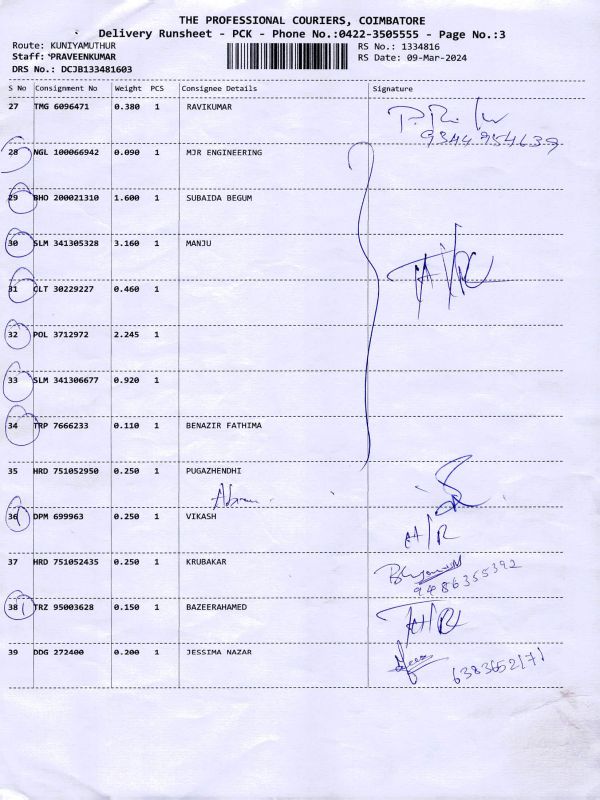 THE PROFESSIONAL COURIERS, COIMBATORE
Delivery Runsheet - PCK - Phone No.:0422-3505555 - Page No.:3
Route: KUNIYAMUTHUR RS No.: 1334816
Staff: PRAVEENKUMAR RS Date: 09-Mar-2024
DRS No.: DCJB133481603
S No Consignment No Weight PCS Consignee Details Signature
27 TMG 6096471 0.380 1 RAVIKUMAR
9344954639
28 NGL 100066942 0.090 1 MJR ENGINEERING
29 BHO 200021310 1.600 1 SUBAIDA BEGUM
30 SLM 341305328 3.160 1 MANJU
31 CLT 30229227 0.460 1
32 POL 3712972 2.245 1
33 SLM 341306677 0.920 1
34 TRP 7666233 0.110 1 BENAZIR FATHIMA
35 HRD 751052950 0.250 1 PUGAZHENDHI
36 DPM 699963 0.250 1 VIKASH A/R
37 HRD 751052435 0.250 1 KRUBAKAR
9486355392
38 TRZ 95003628 0.150 1 BAZEERAHAMED
39 DDG 272400 0.200 1 JESSIMA NAZAR 6383652171